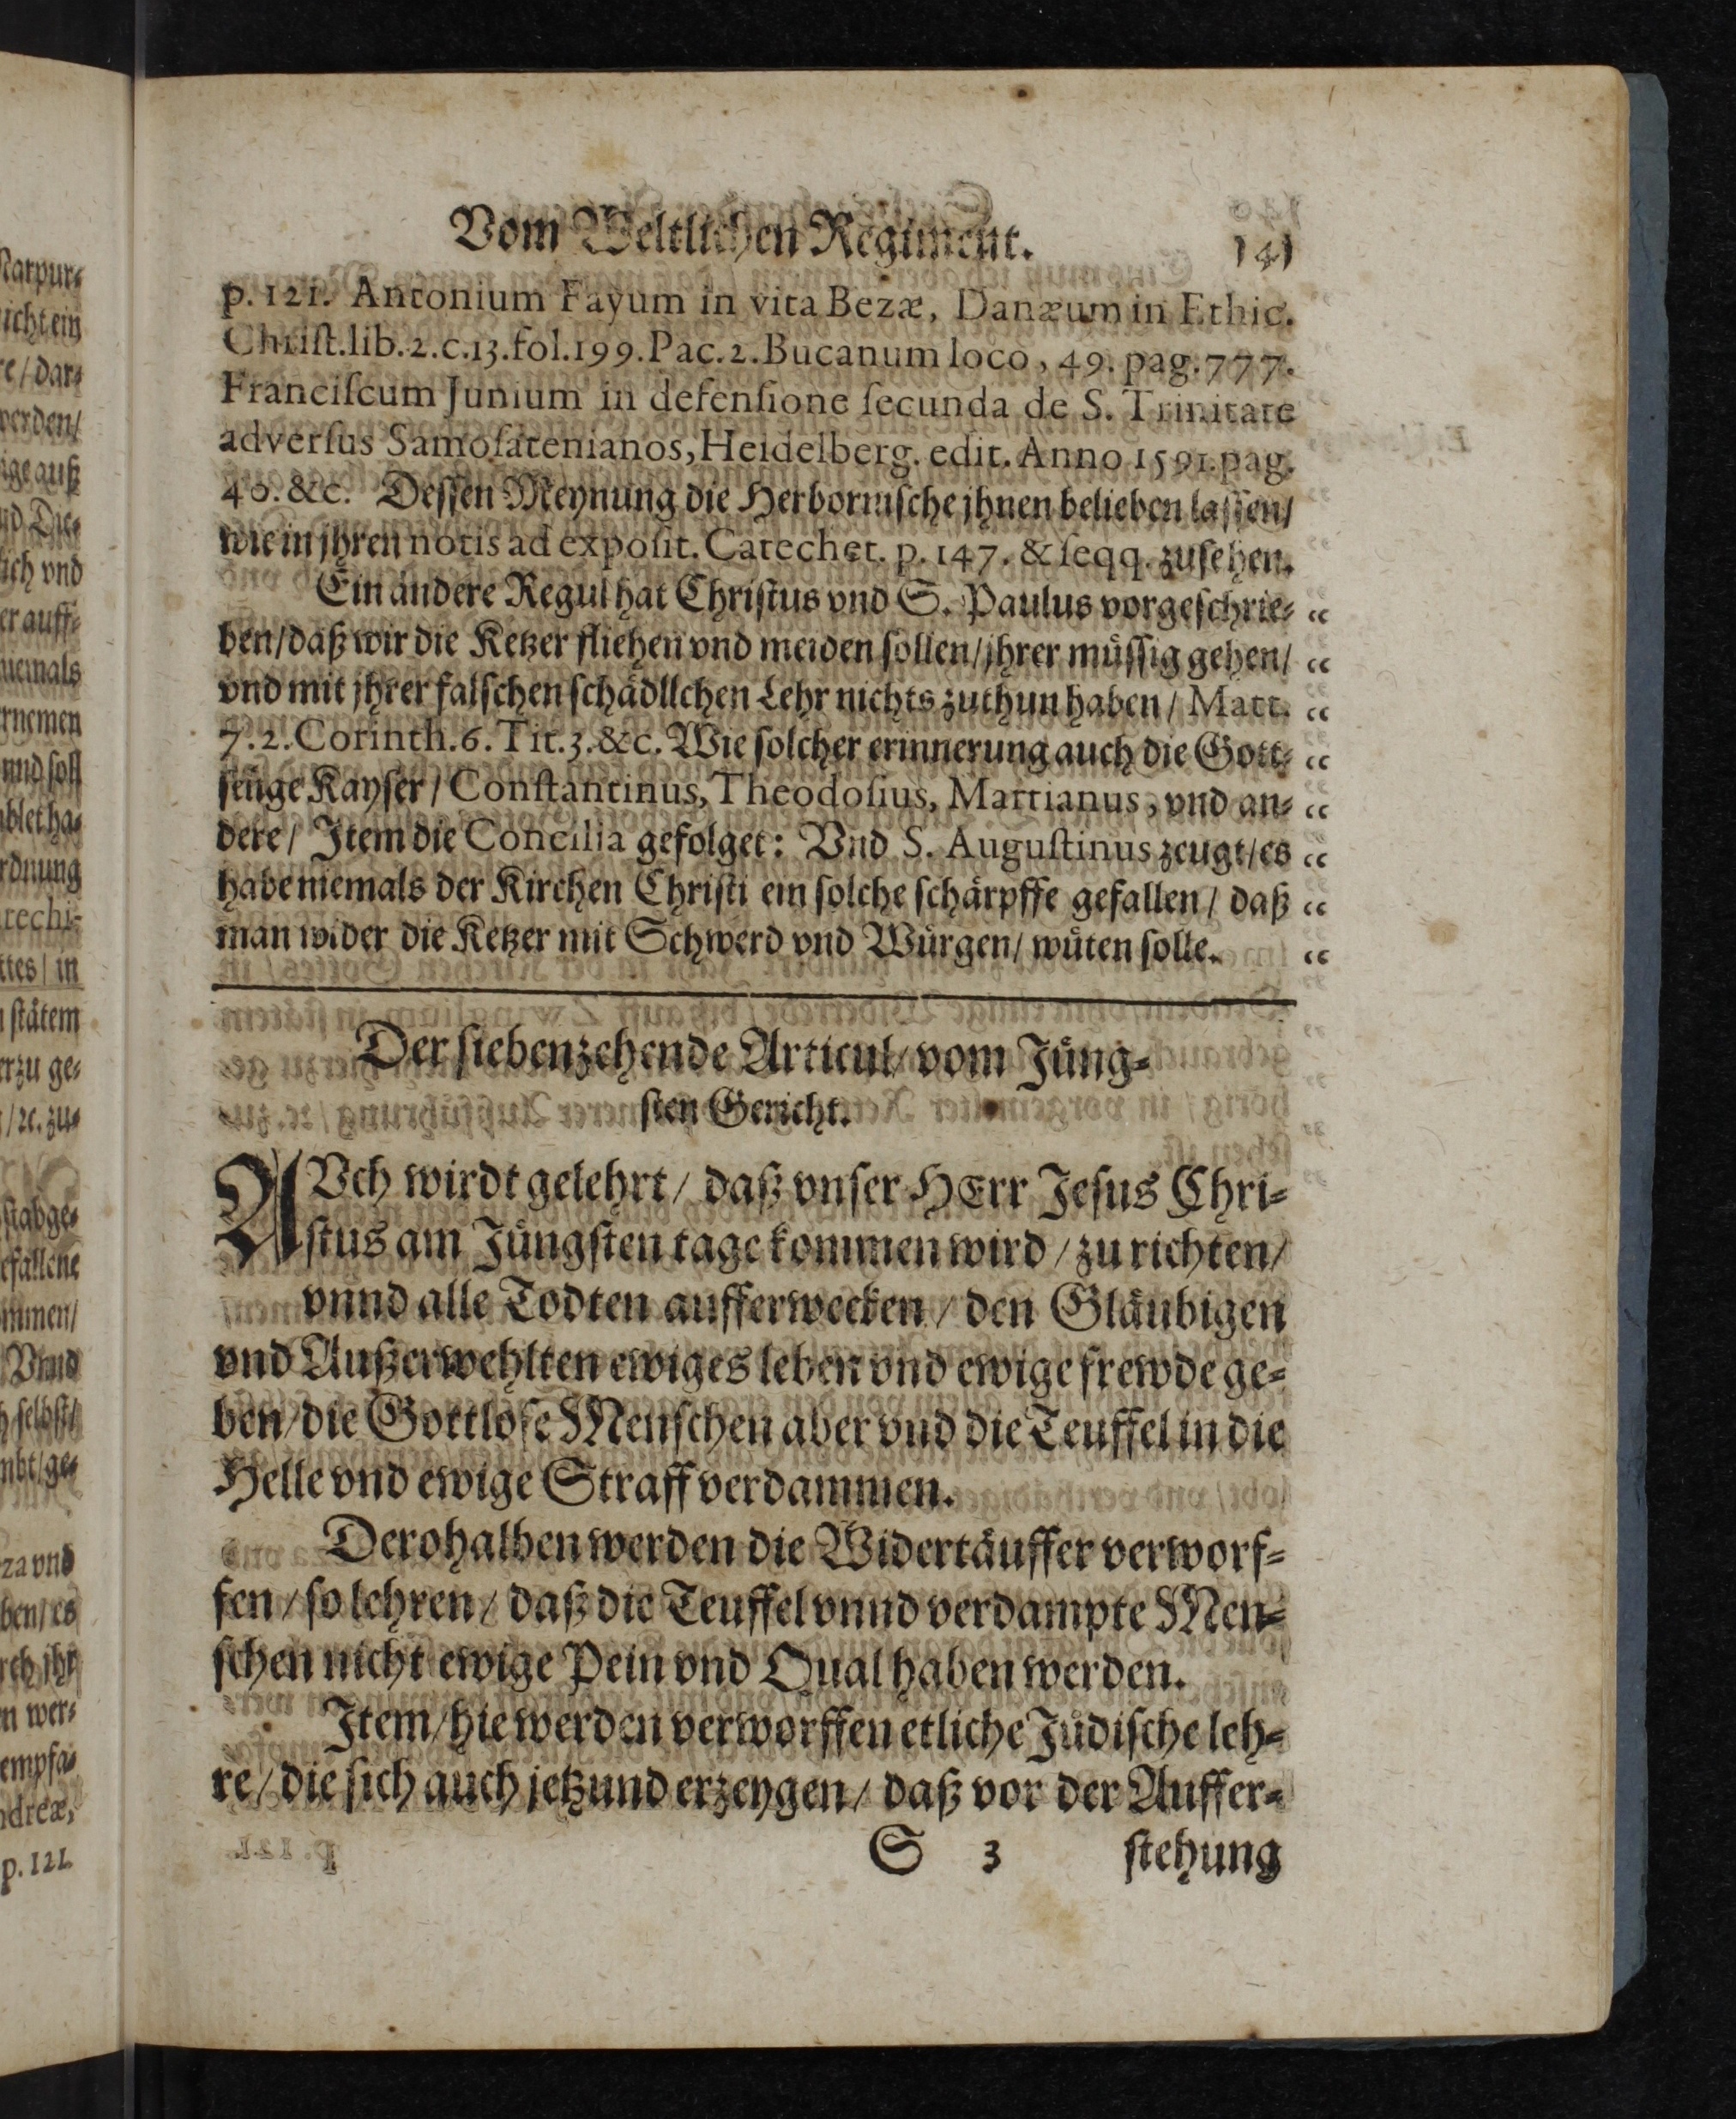 Vom Weltlichen Regiment. 141
p. 121. Antonium Fayum in vita Bezæ, Danæum in Ethic.
Chriſt.lib.2.c.13.fol.199.Pac.2.Bucanum loco, 49. pag.777.
Franciſcum Junium in defenſione ſecunda de S. Trinitate
adverſus Samoſatenianos, Heidelberg. edit. Anno 1591. pag.
40. &c. Deſſen Meynung die Herborniſche jhnen belieben laſſen/
wie in jhren notis ad expoſit. Catechet. p. 147. & ſeqq. zuſehen.
Ein andere Regul hat Chriſtus vnd S. Paulus vorgeſchrie- “
ben/ daß wir die Ketzer fliehen vnd meiden ſollen/ jhrer müſſig gehen/ “
vnd mit jhrer falſchen ſchädllchen Lehr nichts zuthun haben/ Matt. “
7. 2. Corinth. 6. Tit. 3. &c. Wie ſolcher erinnerung auch die Gott- “
ſelige Kayſer/ Conſtantinus, Theodoſius, Martianus, vnd an- “
dere/ Item die Concilia gefolget: Vnd S. Auguſtinus zeugt/ es “
habe niemals der Kirchen Chriſti ein ſolche ſchärpffe gefallen/ daß “
man wider die Ketzer mit Schwerd vnd Würgen/ wüten ſolle. “
Der ſiebenzehende Articul/ vom Jüng-
ſten Gericht.
AVch wirdt gelehrt/ daß vnſer HErr Jeſus Chri-
ſtus am Jüngſten tage kommen wird/ zu richten/
vnnd alle Todten aufferwecken/ den Gläubigen
vnd Außerwehlten ewiges leben vnd ewige frewde ge-
ben/ die Gottloſe Menſchen aber vnd die Teuffel in die
Helle vnd ewige Straff verdammen.
Derohalben werden die Widertäuffer verworf-
fen/ ſo lehren/ daß die Teuffel vnnd verdampte Men-
ſchen nicht ewige Pein vnd Qual haben werden.
Item/ hie werden verworffen etliche Jüdiſche leh-
re/ die ſich auch jetzund erzeygen/ daß vor der Auffer-
S 3 ſtehung